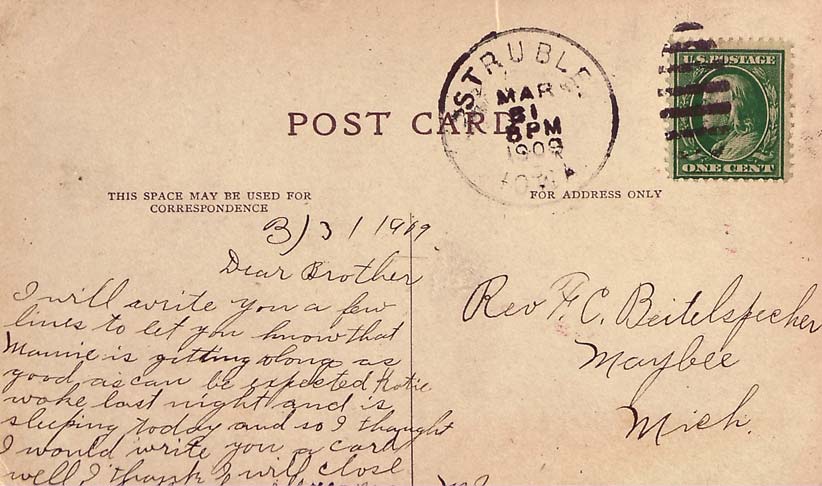 STRUBLE
MAR
31
6PM
1909
IOWA
U.S. POSTAGE
ONE CENT
POST CARD
THIS SPACE MAY BE USED FOR
CORRESPONDENCE
FOR ADDRESS ONLY
3/31 1909
Dear Brother
I will write you a few
lines to let you know that
Mamie is getting along as
good as can be expected Katie
woke last night and is
sleeping today and so I thought
I would write you a card
well I thank I will close
Rev F. C. Beitelspecher
Maybee
Mich.